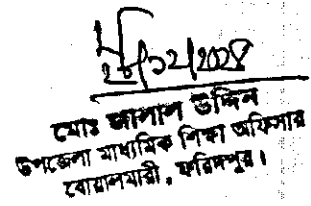 26/12/2024
মোঃ জালাল উদ্দিন
উপজেলা মাধ্যমিক শিক্ষা অফিসার
বোয়ালমারী, ফরিদপুর।